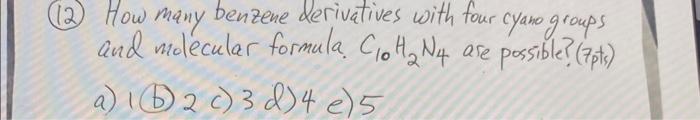 (12) How many benzene derivatives with four cyano groups
and molecular formula. C₁₀H₂N₄ are possible? (7pts)
a) 1 (b) 2 c) 3 d) 4 e) 5